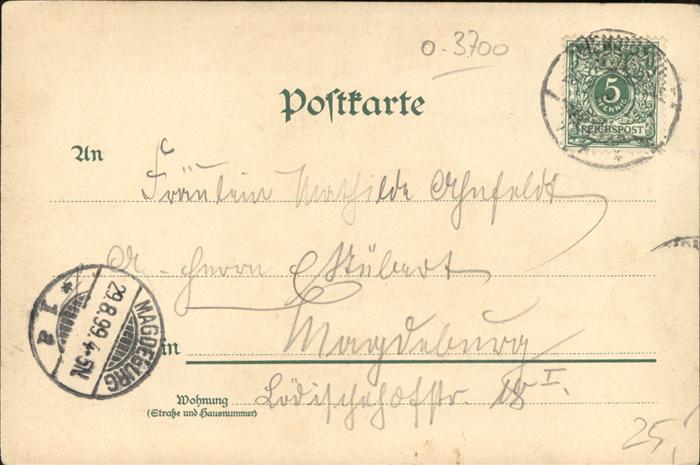 0.3700
Postkarte
5
PFENNIG
REICHSPOST
An
Fräulein Mathilde Ahnfeldt
Herrn Stübert
in Magdeburg
Wohnung
(Straße und Hausnummer)
18 I.
MAGDEBURG
29.8.99 4-5N
* 1 a
25,